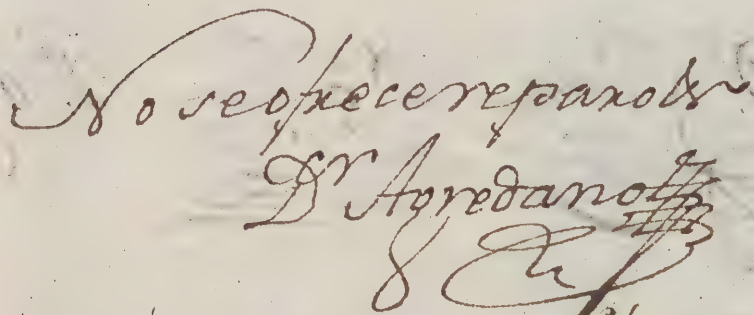 No se ofrece reparo
Dr Agredano